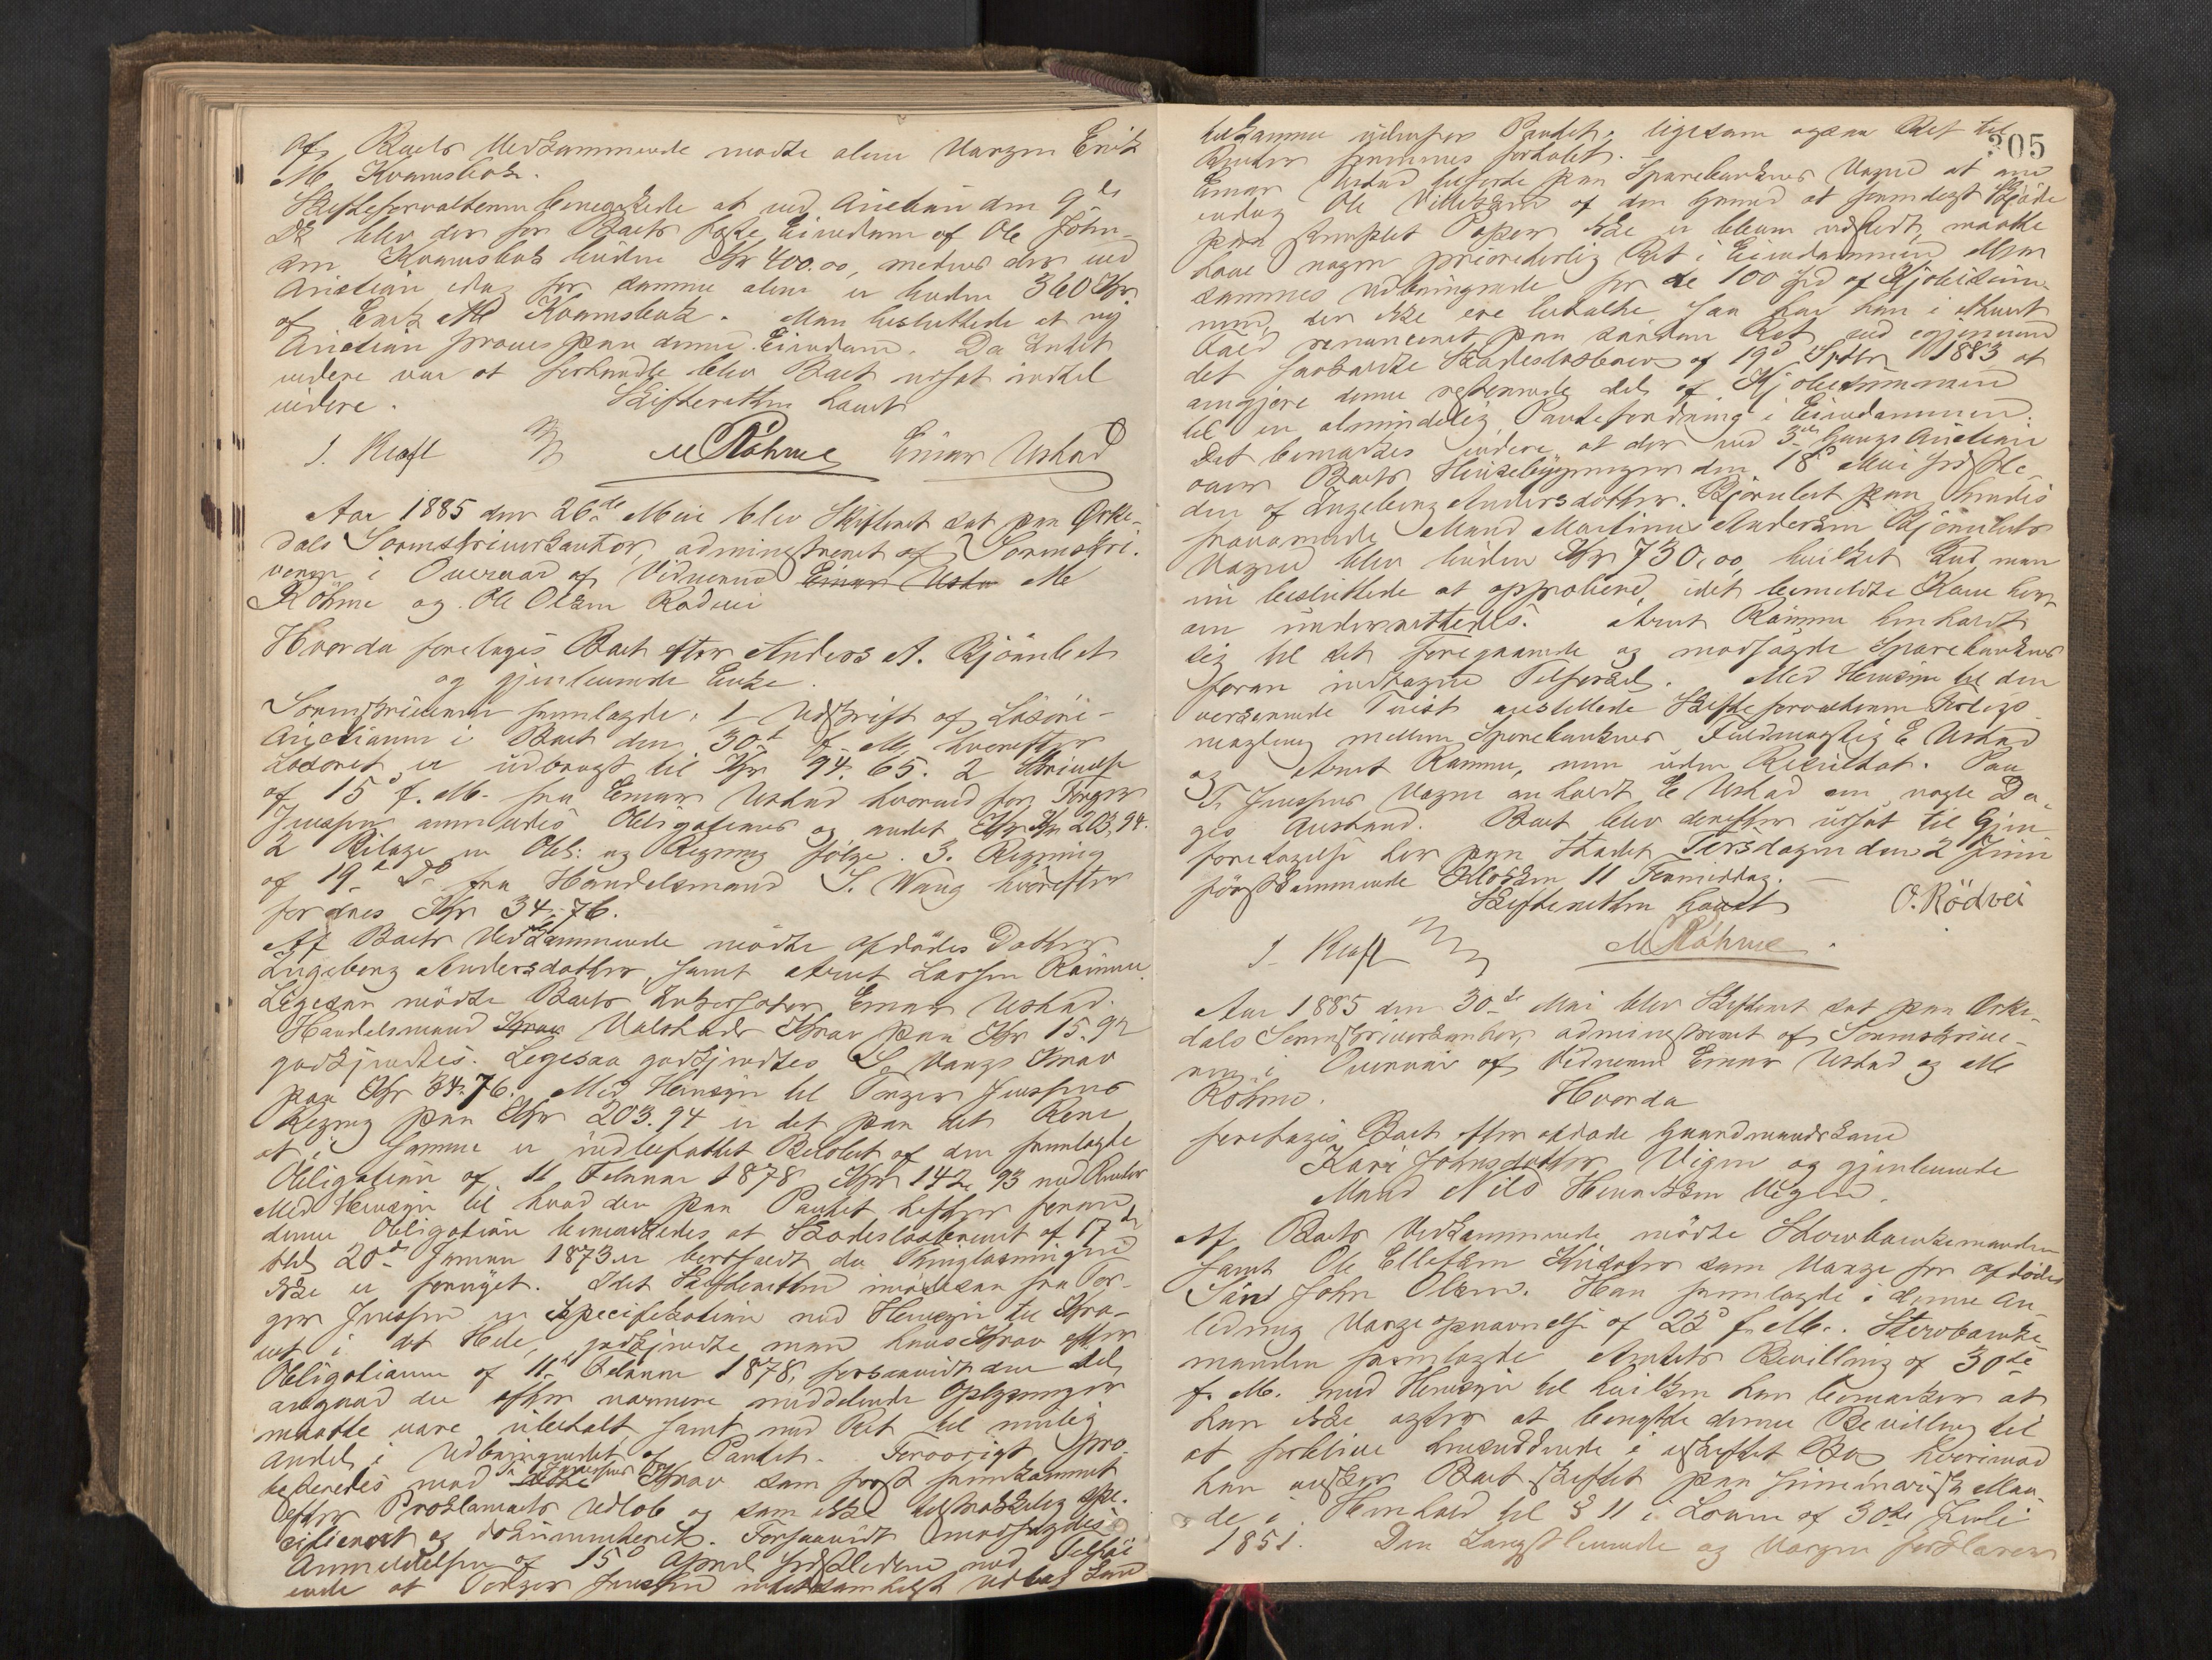 Af Boets Vedkommende mødte alene Værgen Erik
M Kvamsbak.
Skifteforvalteren bemærkede at ved Auction den 9de
ds blev der for Boets faste Eiendom af Ole John-
sen Kvamsbak buden Kr 400.00, medens der ved
Auction idag for samme alene er buden 360 Kr.
af Erik M Kvamsbak. Man besluttede at ny
Auction prøves paa denne Eiendom. Da Intet
videre var at forhandle blev Boet udsat indtil
videre. Skifteretten hævet
J. Kraft M Röhme Einar Ustad
Aar 1885 den 26de Mai blev Skifteret sat paa Orke-
dals Sorenskriverkontor, administreret af Sorenskri-
veren i Overvær af Vidnerne Einar Usta M
Röhme og Ole Olsen Rødvei
Hvorda foretoges Boet efter Anders A. Bjørnbet
og gjenlevende Enke.
Sorenskriveren fremlagde: 1 Udskrift af Løsøre-
Auctionen i Boet den 30te f. M. hvorefter
Løsøret er udbragt til Kr 94.65. 2 Skrivelse
af 15d f. M. fra Einar Ustad hvorved for Torger
Jenssen anmeldes Obligationer og andet Kr 203,94.
2 Bilage en Obl: og Regning følge. 3. Regning
af 19de Ds fra Handelsmand S. Wang hvorefter
fordres Kr 34.76.
Af Boets Vedkommende mødte Afdødes Datter
Ingeborg Andersdatter, samt Arnt Larssen Rømme.
Ligesaa mødte Boets Inkassator Einar Ustad.
Handelsmand Krav Valstads Krav paa Kr 15.92
godkjendtes. Ligesaa godkjendtes S. Wangs Krav
paa Kr 34.76. Med Hensyn til Torger Jenssens
Regning paa Kr 203.94 er det paa det Rene
at i samme er indbefattet Beløbet af den fremlagte
Obligation af 11 Februar 1878 Kr 142,93 med Renter
Med Hensyn til hvad der paa Pantet hefter foran
denne Obligation bemærkedes, at Skadesløsbrevet af 17de
tbl. 20de Januar 1873 er bortfaldt da Thinglæsningen
ikke er fornyet. Idet Skifteretten imødesaa fra Tor-
ger Jenssen en Specifikation med Hensyn til Kra-
vet i det Hele, godkjendte man hans Krav efter
Obligationen af 11te Februar 1878, forsaavidt den del
angaar der efter nærmere meddelende Oplysninger
maatte være ubetalt samt med Ret til mulig
Andel i Udbringendet af Pantet. Forøvrigt pro-
testeredes mod T. Jenssens Krav som først fremkommet
efter Proklamaets Udløb og som ikke tilstrækkelig spe-
cificeret og dokumenteret. Forsaavidt modsagdes
Anmeldelsen af 15d April sidstleden med Tilføi-
ende at Torger Jenssen intetsomhelst Udlæg kan
305
tilkomme udenfor Pantet, ligesom ogsaa Ret til
Renter fremmes forholdt.
Einar Ustad anførte paa Sparebankens Vegne at om
endog Ole Villeksen af den Grund at fremlagt Skjøde
paa stemplet Papir ikke er bleven udstedt, maatte
have nogen prioriterlig Ret i Eiendommen eller
sammes Udbringende for de 100 spd af Kjøbesum-
men, der ikke ere betalte, saa har han i ethvert
Fald renunceret paa saadan Ret ved igjennem
det saakaldte Skadesløsbrev af 19d Septbr 1883 at
omgjøre denne resterende del af Kjøbesummen
til en almindelig Pantefordring i Eiendommen.
Det bemærkes videre at der ved 3die Gangs Auction
over Boets Husebygninger den 18d Mai sidstle-
den af Ingeborg Andersdatter Bjørnbet paa hendes
fraværende Mand Martinus Andersen Bjørnbets
Vegne blev buden Kr 730,00, hvilket Bud man
nu besluttede at approbere, idet bemeldte Kone her-
om underrettedes. Arnt Rømme henholdt
sig til det foregaaende og modsagde Sparebankens
foran indtagne Tilførsel. Med Hensyn til den
verserende Tvist anstillede Skifteforvalteren Forligs-
mægling mellem Sparebankens Fuldmægtig E Ustad
og Arnt Rømme, men uden Resultat. Paa
T. Jenssens Vegne anholdt E Ustad om nogle Da-
ges Anstand. Boet blev derefter udsat til Gjen-
foretagelse her paa Stedet Tirsdagen den 2 Juni
førstkommende Klokken 11 Formiddag.
Skifteretten hævet O. Rödvei
J. Kraft M Röhme.
Aar 1885 den 30te Mai blev Skifteret sat paa Orke-
dals Sorenskriverkontor, administreret af Sorenskrive-
ren i Overvær af Vidnerne Einar Ustad og M
Röhme. Hvorda
foretoges Boet efter afdøde Gaardmandskone
Kari Johnsdatter Vigen og gjenlevende
Mand Nils Henriksen Vigen.
Af Boets Vedkommende mødte Stervboenkemanden
samt Ole Ellefsen as Værge for Afdødes
Søn John Olsen. Han fremlagde i denne An-
ledning Værgeopnævnelse af 22d f. M.. Stervboenke-
manden fremlagde Amtets Bevilling af 30te
f. M. med Hensyn til hvilken han bemærker at
han ikke agter at benytte denne Bevilling til
at forblive hensiddende i uskiftet Bo, hvorimod
han ønsker Boet skiftet paa summarisk Maa-
de i Henhold til § 11 i Loven af 30te Juli
1851. Den Længstlevende og Værgen forklarer